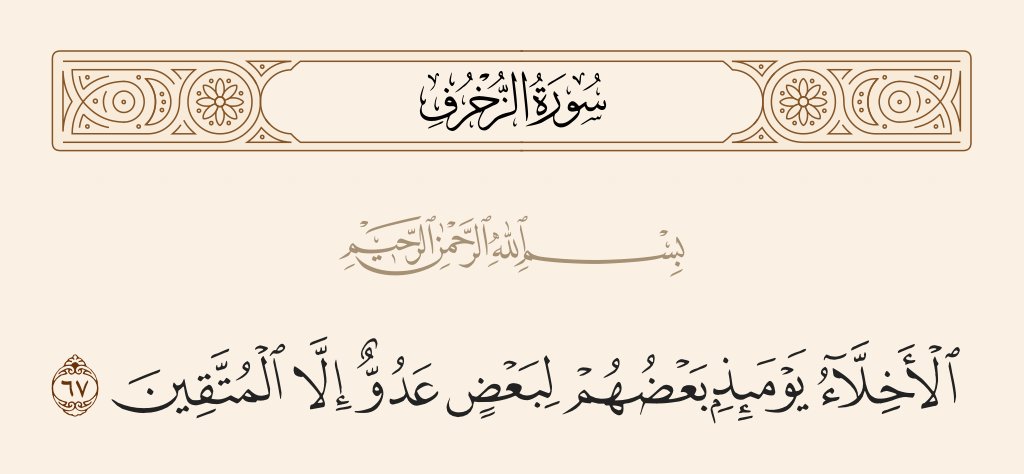 سُورَةُ الزُّخْرُفِ
بِسْمِ ٱللَّهِ ٱلرَّحْمَٰنِ ٱلرَّحِيمِ
ٱلْأَخِلَّآءُ يَوْمَئِذٍۭ بَعْضُهُمْ لِبَعْضٍ عَدُوٌّ إِلَّا ٱلْمُتَّقِينَ ٦٧